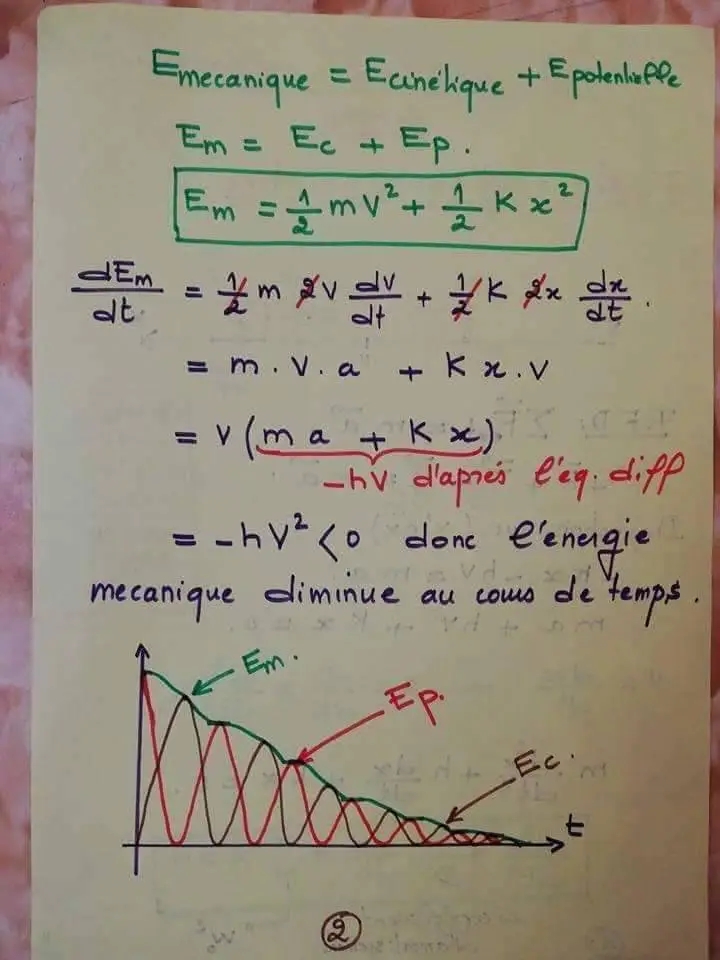 Emecanique = Ecinétique + Epotentielle
Em = Ec + Ep.
Em = 1/2 mV² + 1/2 K x²
dEm/dt = 1/2 m 2V dv/dt + 1/2 K 2x dx/dt.
= m . V . a + K x . V
= V (m a + K x)
-hV d'aprés l'éq. diff
= -hV² < 0 donc l'énergie
mecanique diminue au cours de temps.
Em.
Ep.
Ec.
t
2